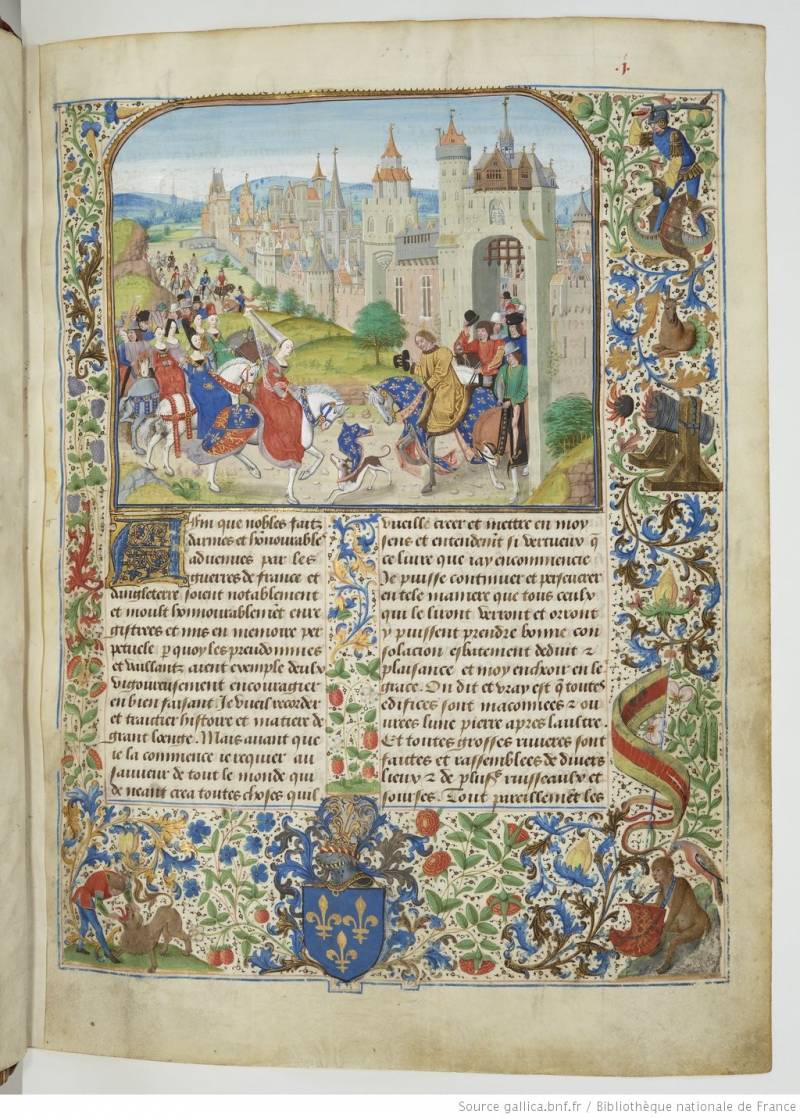 .j.
Afin que nobles faitz
darmes et honnourable
aduenues par les
guerres de france et
dangleterre soient notablement
et moult honnourablemẽt enre
gistrees et mis en memoire per
petuele p quoy les preudommes
et vaillantz aient exemple deulx
vigoureusement encouragier
en bien faisant. Je vueil recorder
et traittier histoire et matiere de
grant loenge. Mais auant que
ie la commence ie requier au
sauueur de tout le monde qui
de neant crea toutes choses quil
vueille creer et mettre en moy
sens et entendemẽt si vertueux q̃
ce liure que iay encommencie
Je puisse continuer et perseuerer
en tele maniere que tous ceulx
qui le liront verront et orront
y puissent prendre bonne con
solacion esbatement deduit ⁊
plaisance et moy encheoir en le
grace. On dit et vray est q̃ toutes
edifices sont maconnees ⁊ ou
urees lune pierre apres laultre.
Et toutes grosses riuieres sont
faittes et rassemblees de diuers
lieux ⁊ de plusrs ruisseaulx et
sourses. Tout pareillemẽt les
Source gallica.bnf.fr / Bibliothèque nationale de France